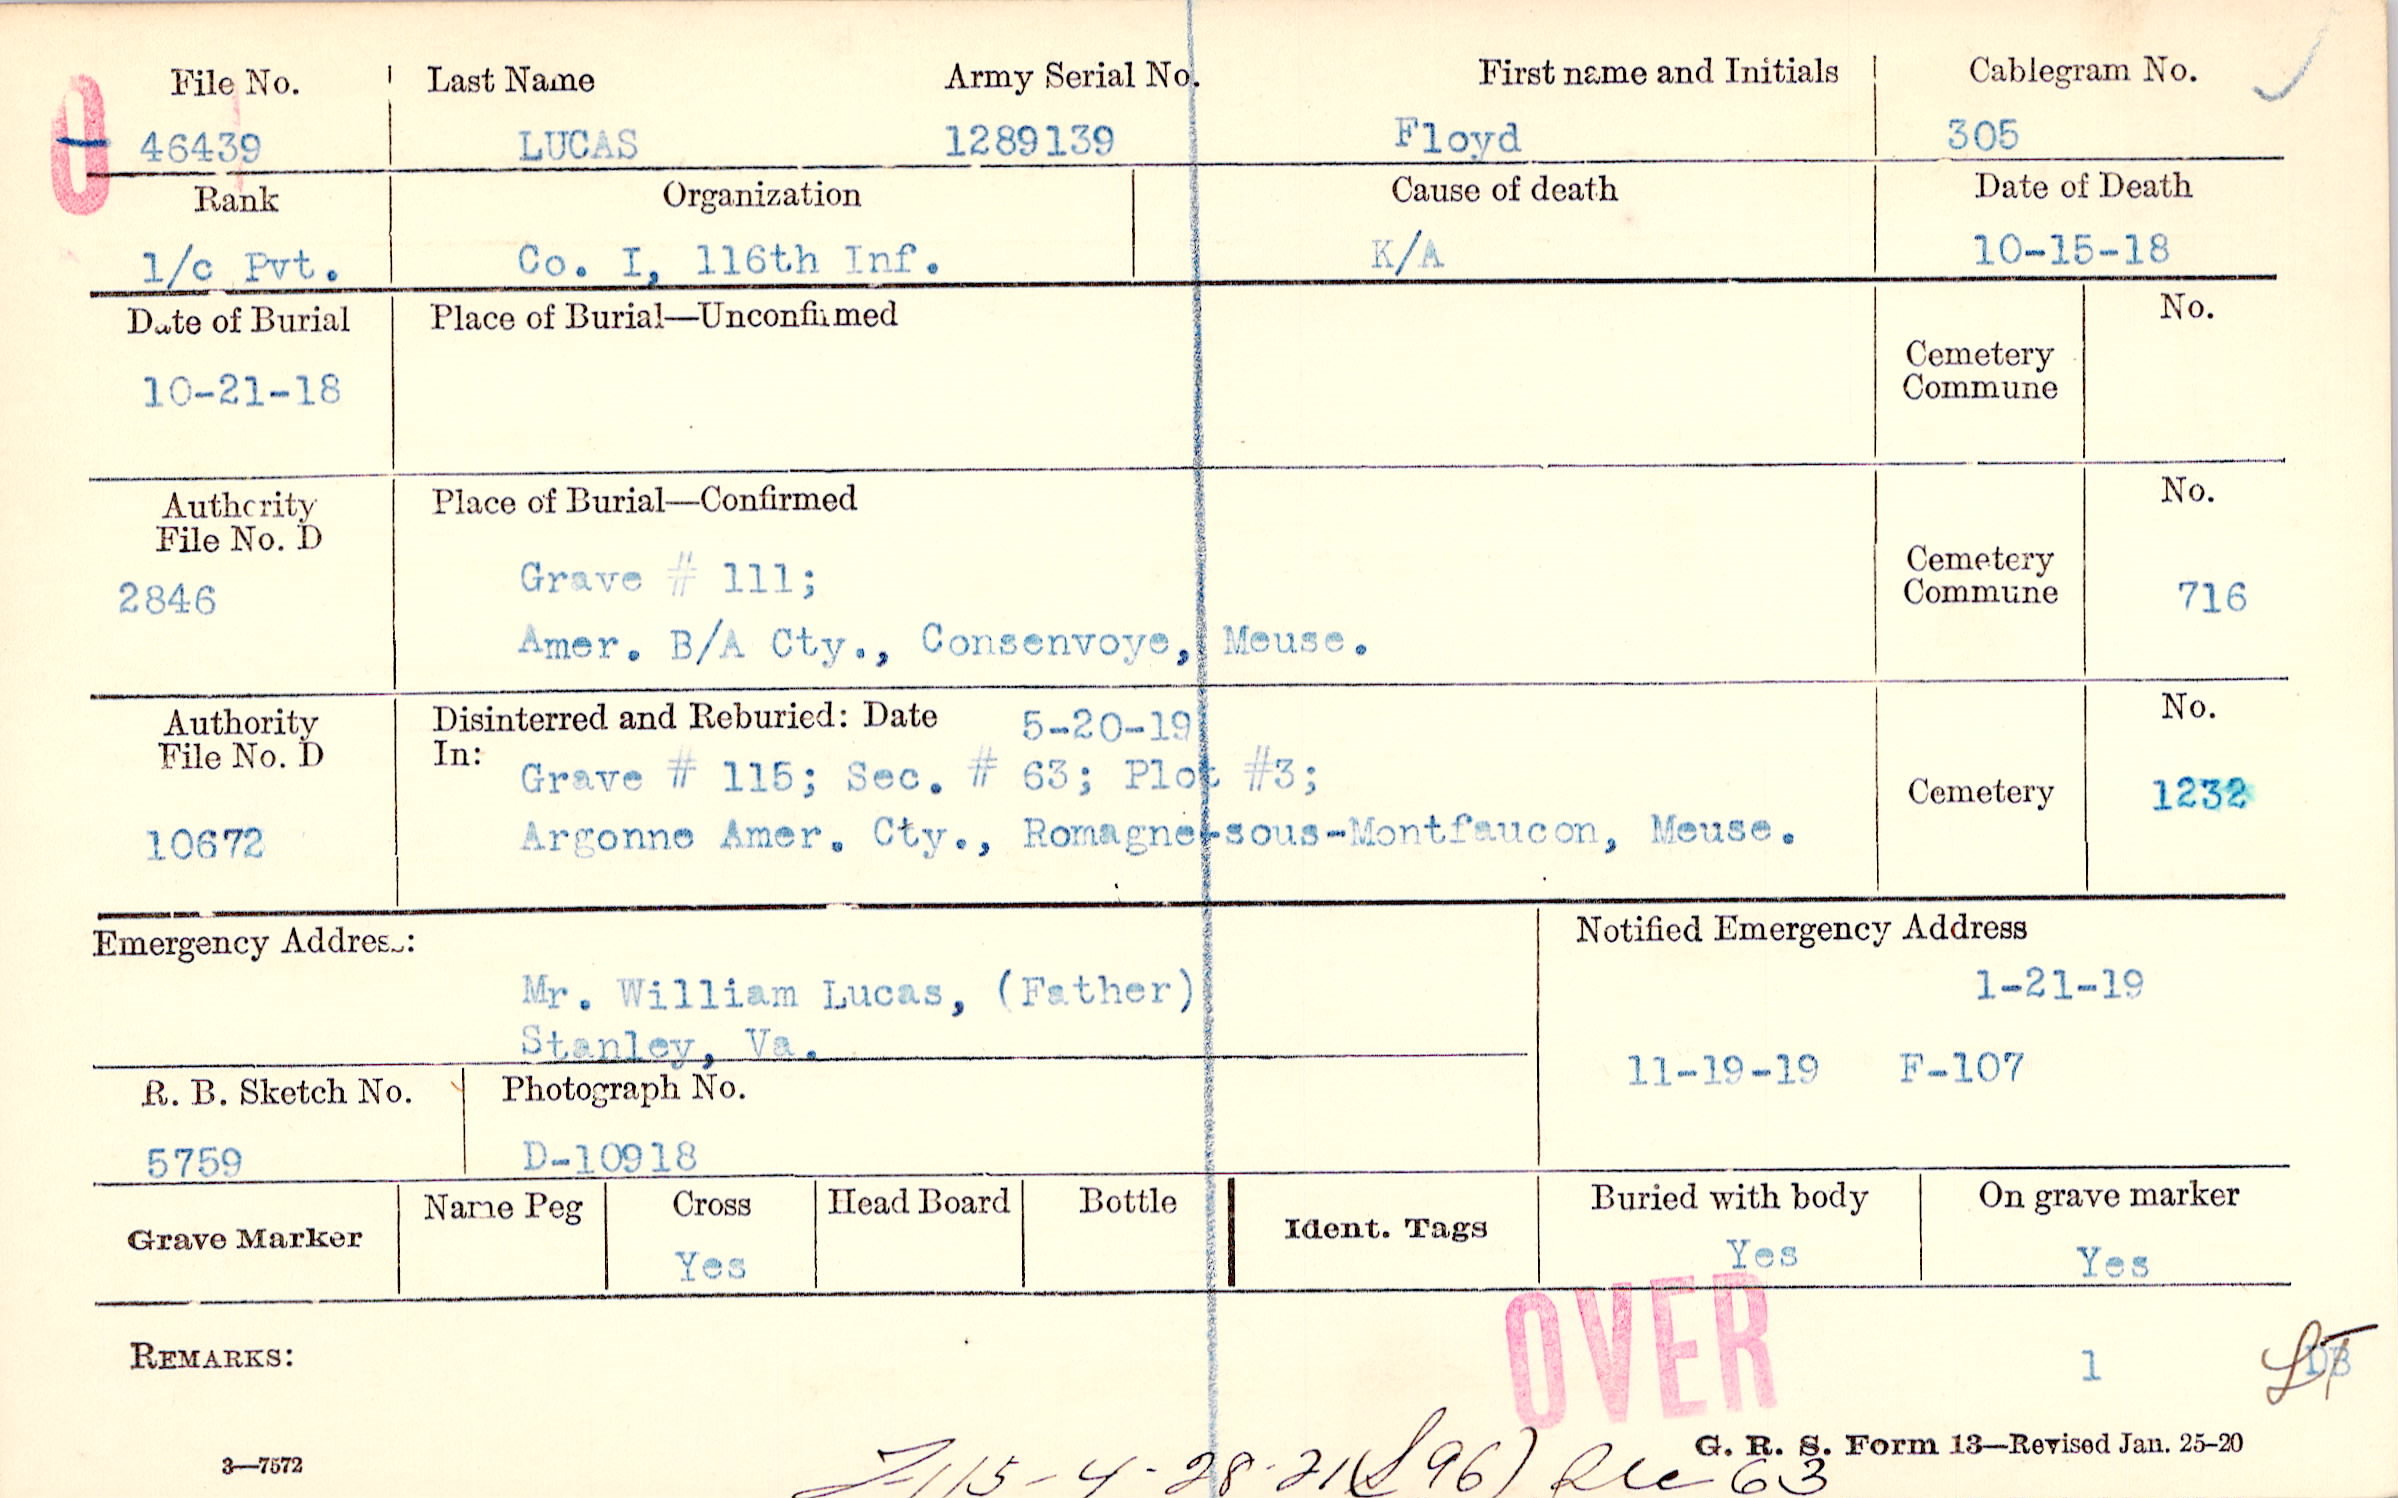 File No. Last Name Army Serial No. First name and Initials Cablegram No.
46439 LUCAS 1289139 Floyd 305
Rank Organization Cause of death Date of Death
1/c Pvt. Co. I, 116th Inf. K/A 10-15-18
Date of Burial Place of Burial—Unconfirmed Cemetery Commune No.
10-21-18
Authority File No. D Place of Burial—Confirmed Cemetery Commune No.
2846 Grave # 111; 716
Amer. B/A Cty., Consenvoye, Meuse.
Authority File No. D Disinterred and Reburied: Date 5-20-19 No.
In: Grave # 115; Sec. # 63; Plot #3; Cemetery 1232
10672 Argonne Amer. Cty., Romagne-sous-Montfaucon, Meuse.
Emergency Address: Notified Emergency Address
Mr. William Lucas, (Father) 1-21-19
Stanley, Va.
11-19-19 F-107
R. B. Sketch No. Photograph No.
5759 D-10918
Grave Marker Name Peg Cross Head Board Bottle Ident. Tags Buried with body On grave marker
Yes Yes Yes
OVER
REMARKS: 1 DB
G. R. S. Form 13—Revised Jan. 25-20
3—7572
115-4-28-21 96) 63